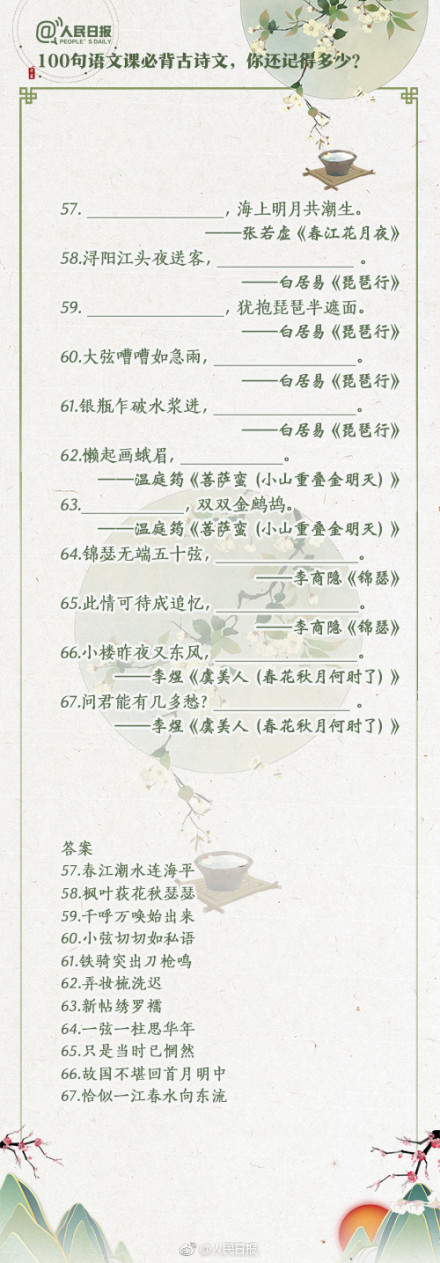 @人民日报
PEOPLE'S DAILY
100句语文课必背古诗文，你还记得多少？
57. ________________，海上明月共潮生。
——张若虚《春江花月夜》
58.浔阳江头夜送客，________________。
——白居易《琵琶行》
59. ________________，犹抱琵琶半遮面。
——白居易《琵琶行》
60.大弦嘈嘈如急雨，________________。
——白居易《琵琶行》
61.银瓶乍破水浆迸，________________。
——白居易《琵琶行》
62.懒起画蛾眉，____________。
——温庭筠《菩萨蛮（小山重叠金明灭）》
63.____________，双双金鹧鸪。
——温庭筠《菩萨蛮（小山重叠金明灭）》
64.锦瑟无端五十弦，________________。
——李商隐《锦瑟》
65.此情可待成追忆，________________。
——李商隐《锦瑟》
66.小楼昨夜又东风，________________。
——李煜《虞美人（春花秋月何时了）》
67.问君能有几多愁？________________。
——李煜《虞美人（春花秋月何时了）》
答案
57.春江潮水连海平
58.枫叶荻花秋瑟瑟
59.千呼万唤始出来
60.小弦切切如私语
61.铁骑突出刀枪鸣
62.弄妆梳洗迟
63.新帖绣罗襦
64.一弦一柱思华年
65.只是当时已惘然
66.故国不堪回首月明中
67.恰似一江春水向东流
@人民日报